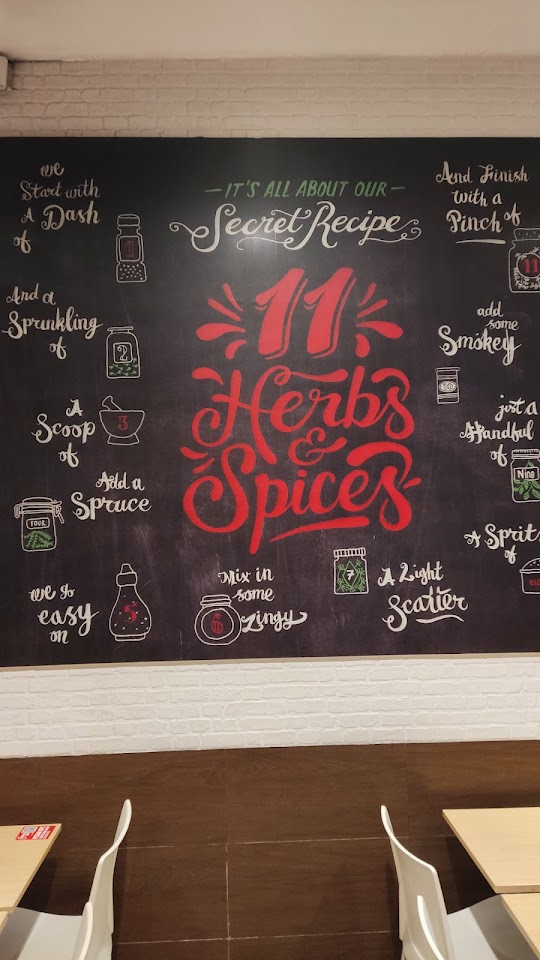 — IT'S ALL ABOUT OUR —
Secret Recipe
11
Herbs
&
Spices
we
Start with
A Dash
of
1
And a
Sprinkling
of
2
A
Scoop
of
3
Add a
Spruce
FOUR
we go
easy
on
5
Mix in
some
Zingy
6
7
A Light
Scatter
A Sprit
of
just a
Handful
of
Nine
add
some
Smokey
10
And Finish
with a
Pinch of
11